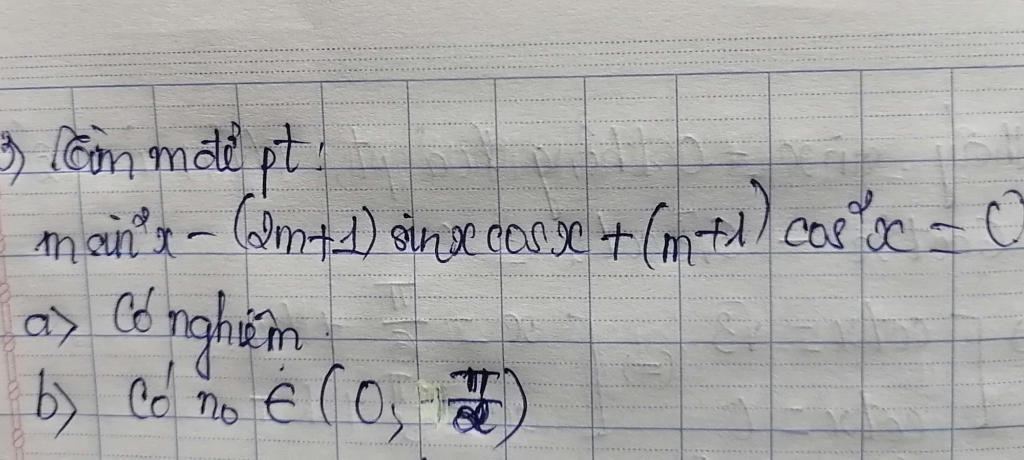 3) Tìm m để pt:
m sin²x - (2m+1) sinx cosx + (m+1) cos²x = 0
a> Có nghiệm.
b> Có no ∈ (0; π/2)